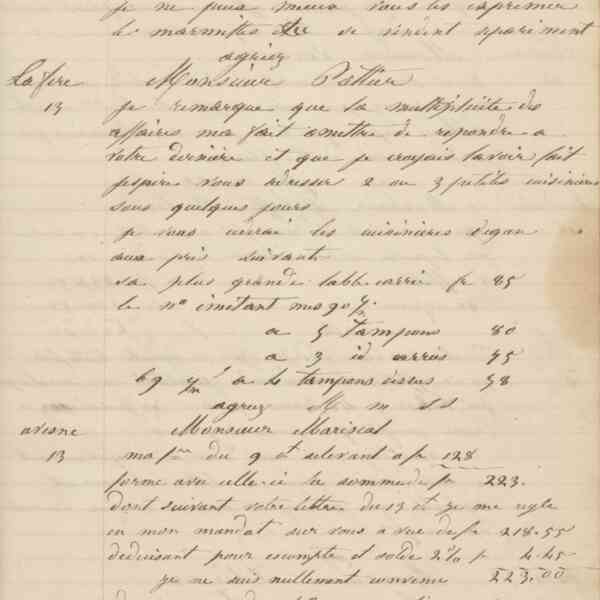 je ne puis mieux vous les exprimer
les marmittes se vendent separiment
agriez
Lafere Monsieur Pottier
13 je remarque que la multiplicité des
affaires ma fait omettre de repondre a
votre derniere et que je croyais lavoir fait
jespere vous adresser 2 ou 3 petites cuisinieres
sous quelques jours
je vous les cuisinieres
aux pris suivants
sa plus grande table carrée fr 85
le n° imitant nos 90
a 5 tampons 80
a 3 id carrés 75
69 a 4 tampons 58
agriez M m s s
avesne Monsieur Mariscal
13 ma du 9 ct selevant a fr 128
forme avec celle ci la somme de fr 223.
dont suivant votre lettre du 13 ct je me regle
en mon mandat sur vous a vue de fr 218.55
deduisant pour escompte et solde 2% f 4.45
je ne suis nullement convenu 223.00